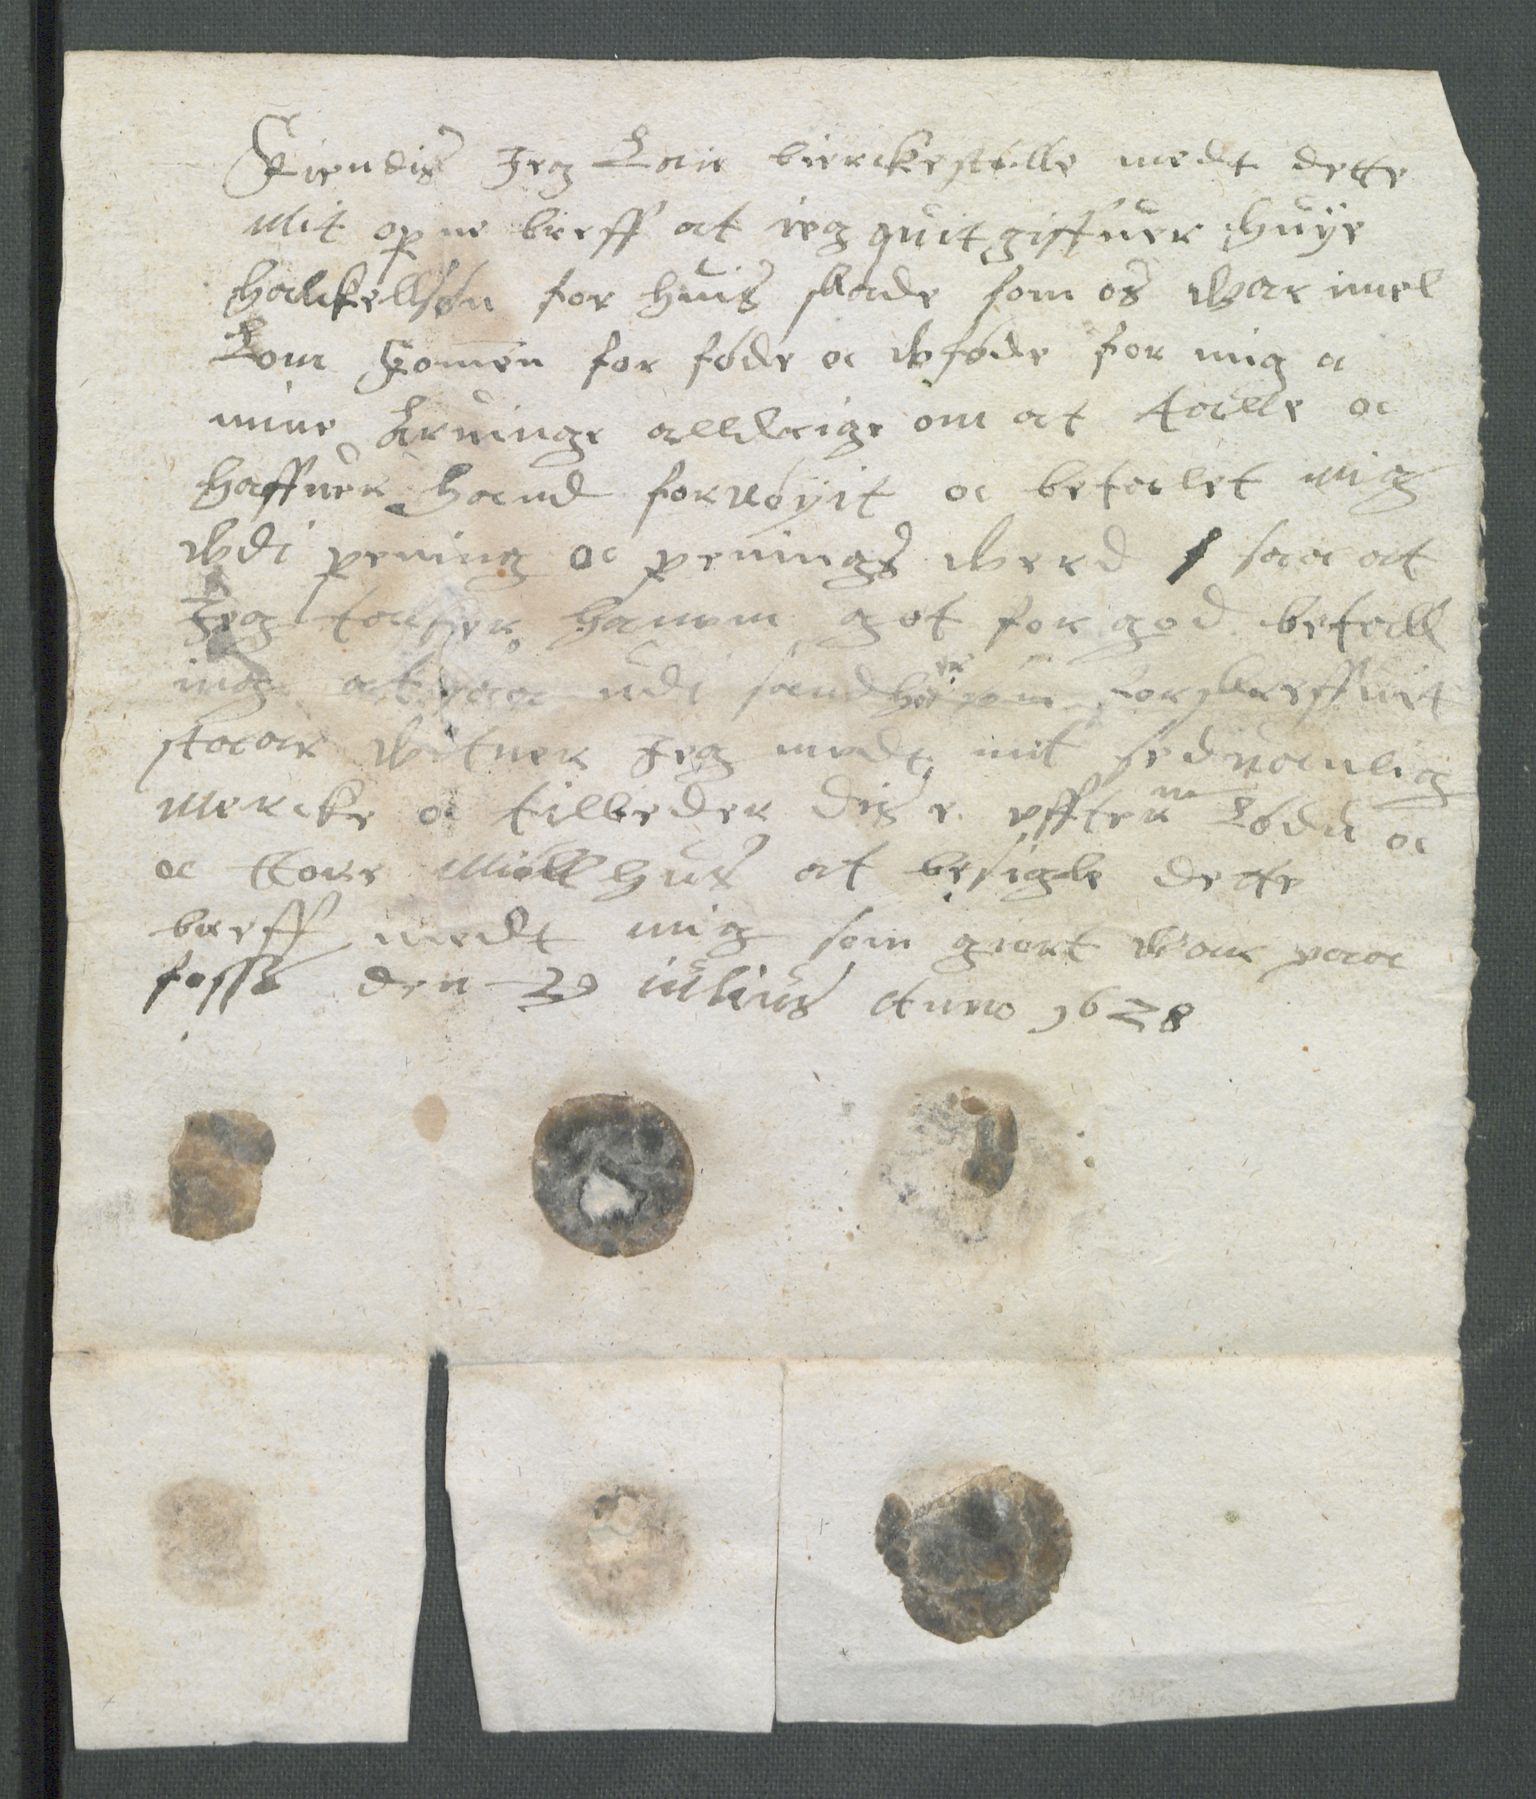 Kiendis Jeg Lair bierckestølle medt dette
Mit opne breff at ieg quit giffuer Huye
halckellsøn for huis skade som os war imel
Lom komen for føde oc wføde for mig oc
mine Eruinge alldrige om at talle oc
haffuer hand fornøyit oc betalet mig
wdi pening oc penings werd / saa at
Jeg tacker hanem got for god betall
ing at saa udi sandhed er som forskreffuit
staaar witner Jeg medt mit seduaanlig
Mercke oc tilbeder disse effterm Lødu oc
oc Tore Miøllhus at besigle dette
breff medt mig som giort war paaa
fosse den 29 iulius Anno 1628